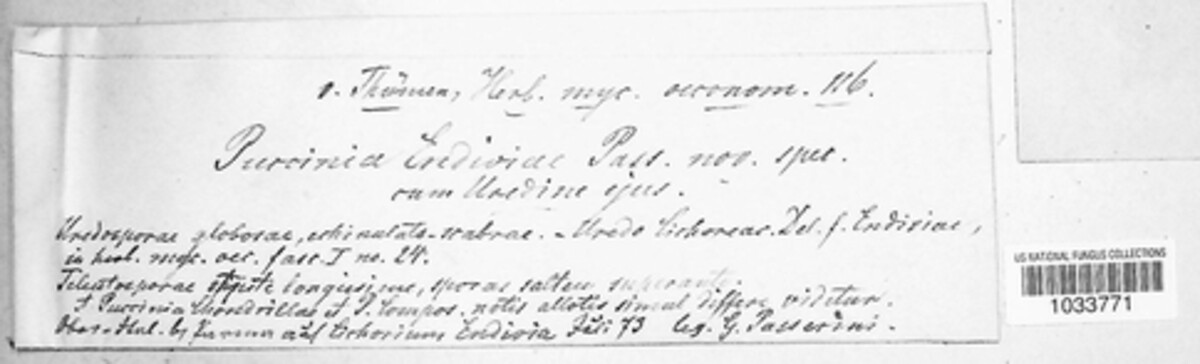 v. Thümen, Herb. myc. oeconom. 116.
Puccinia Endiviae Pass. nov. spec.
cum Uredine ejus.
Uredosporae globosae, echinulato-scabrae. - Uredo Cichoreac. Del. f. Endiviae,
in herb. myc. oec. fasc. I no. 24.
Teleutosporae stipite longissime, sporas saltem superante
A Puccinia Chondrillae et P. Compos. notis allatis simul differe videtur.
Ober-Ital. by Parma auf Cichorium Endivia Juli 73 leg. G. Passerini.
US NATIONAL FUNGUS COLLECTIONS
1033771